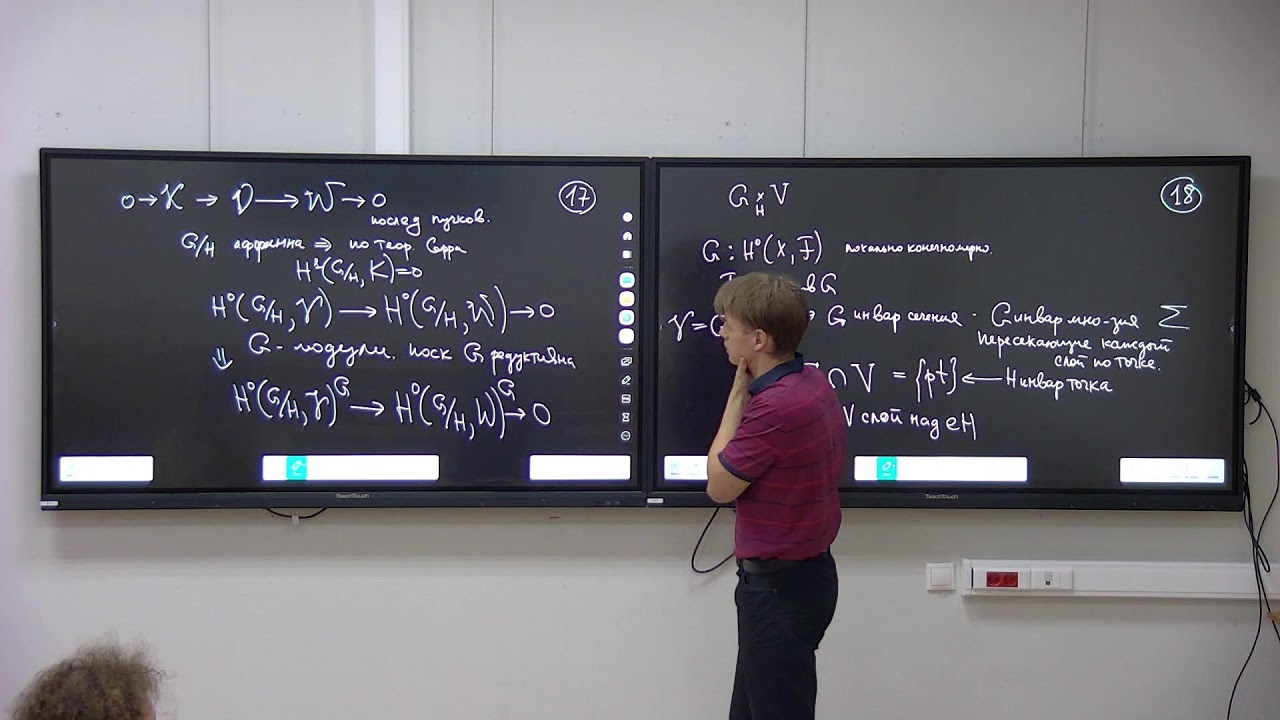 17
0 → K → V → W → 0
послед пучков.
G/H аффинна ⇒ по теор. Серра
H¹(G/H, K)=0
H⁰(G/H, V) → H⁰(G/H, W) → 0
⇓ G-модули. поск G редуктивна
H⁰(G/H, V)^G → H⁰(G/H, W)^G → 0
TeachTouch
18
G ×_H V
G : H⁰(X, F) локально конечномерно.
в G
V = G инвар сечения - G инвар мно-зия Σ
пересекающие каждый
слой по точке.
∩ V = {pt} ← H инвар точка
V слой над eH
TeachTouch